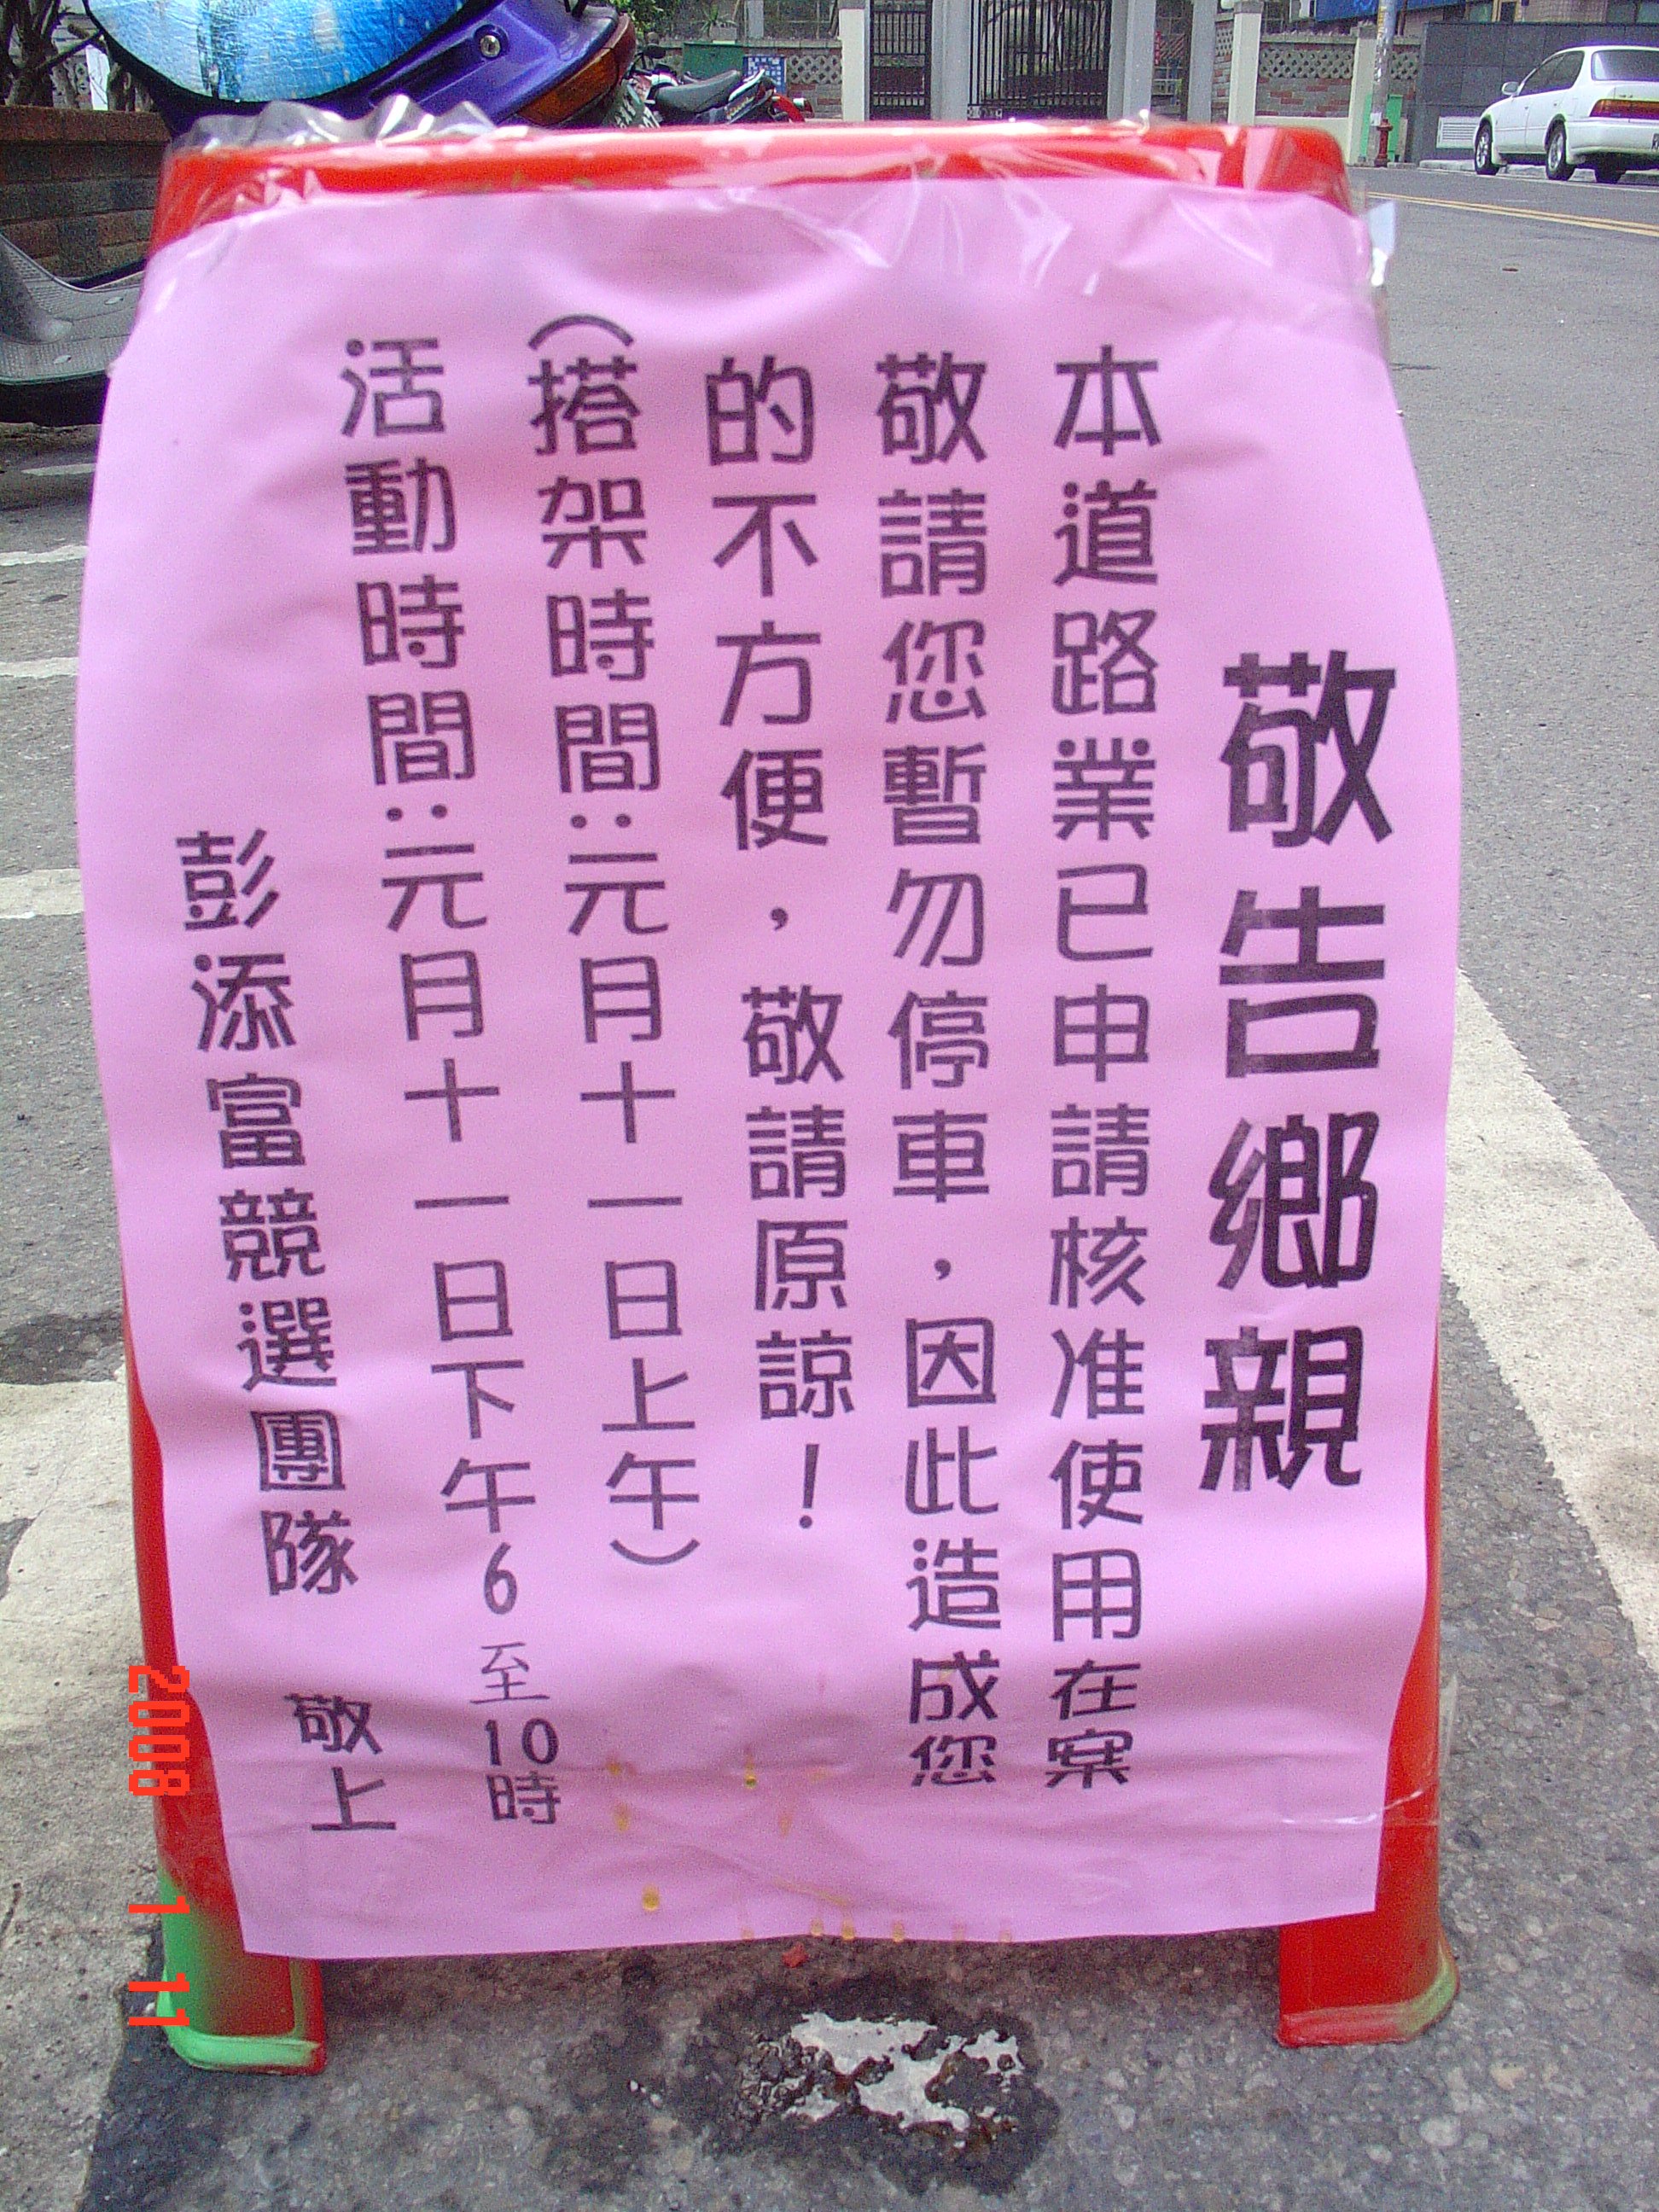 敬告鄉親
本道路業已申請核准使用在案
敬請您暫勿停車，因此造成您
的不方便，敬請原諒！
（搭架時間：元月十一日上午）
活動時間：元月十一日下午6至10時
彭添富競選團隊 敬上
2008 1 11